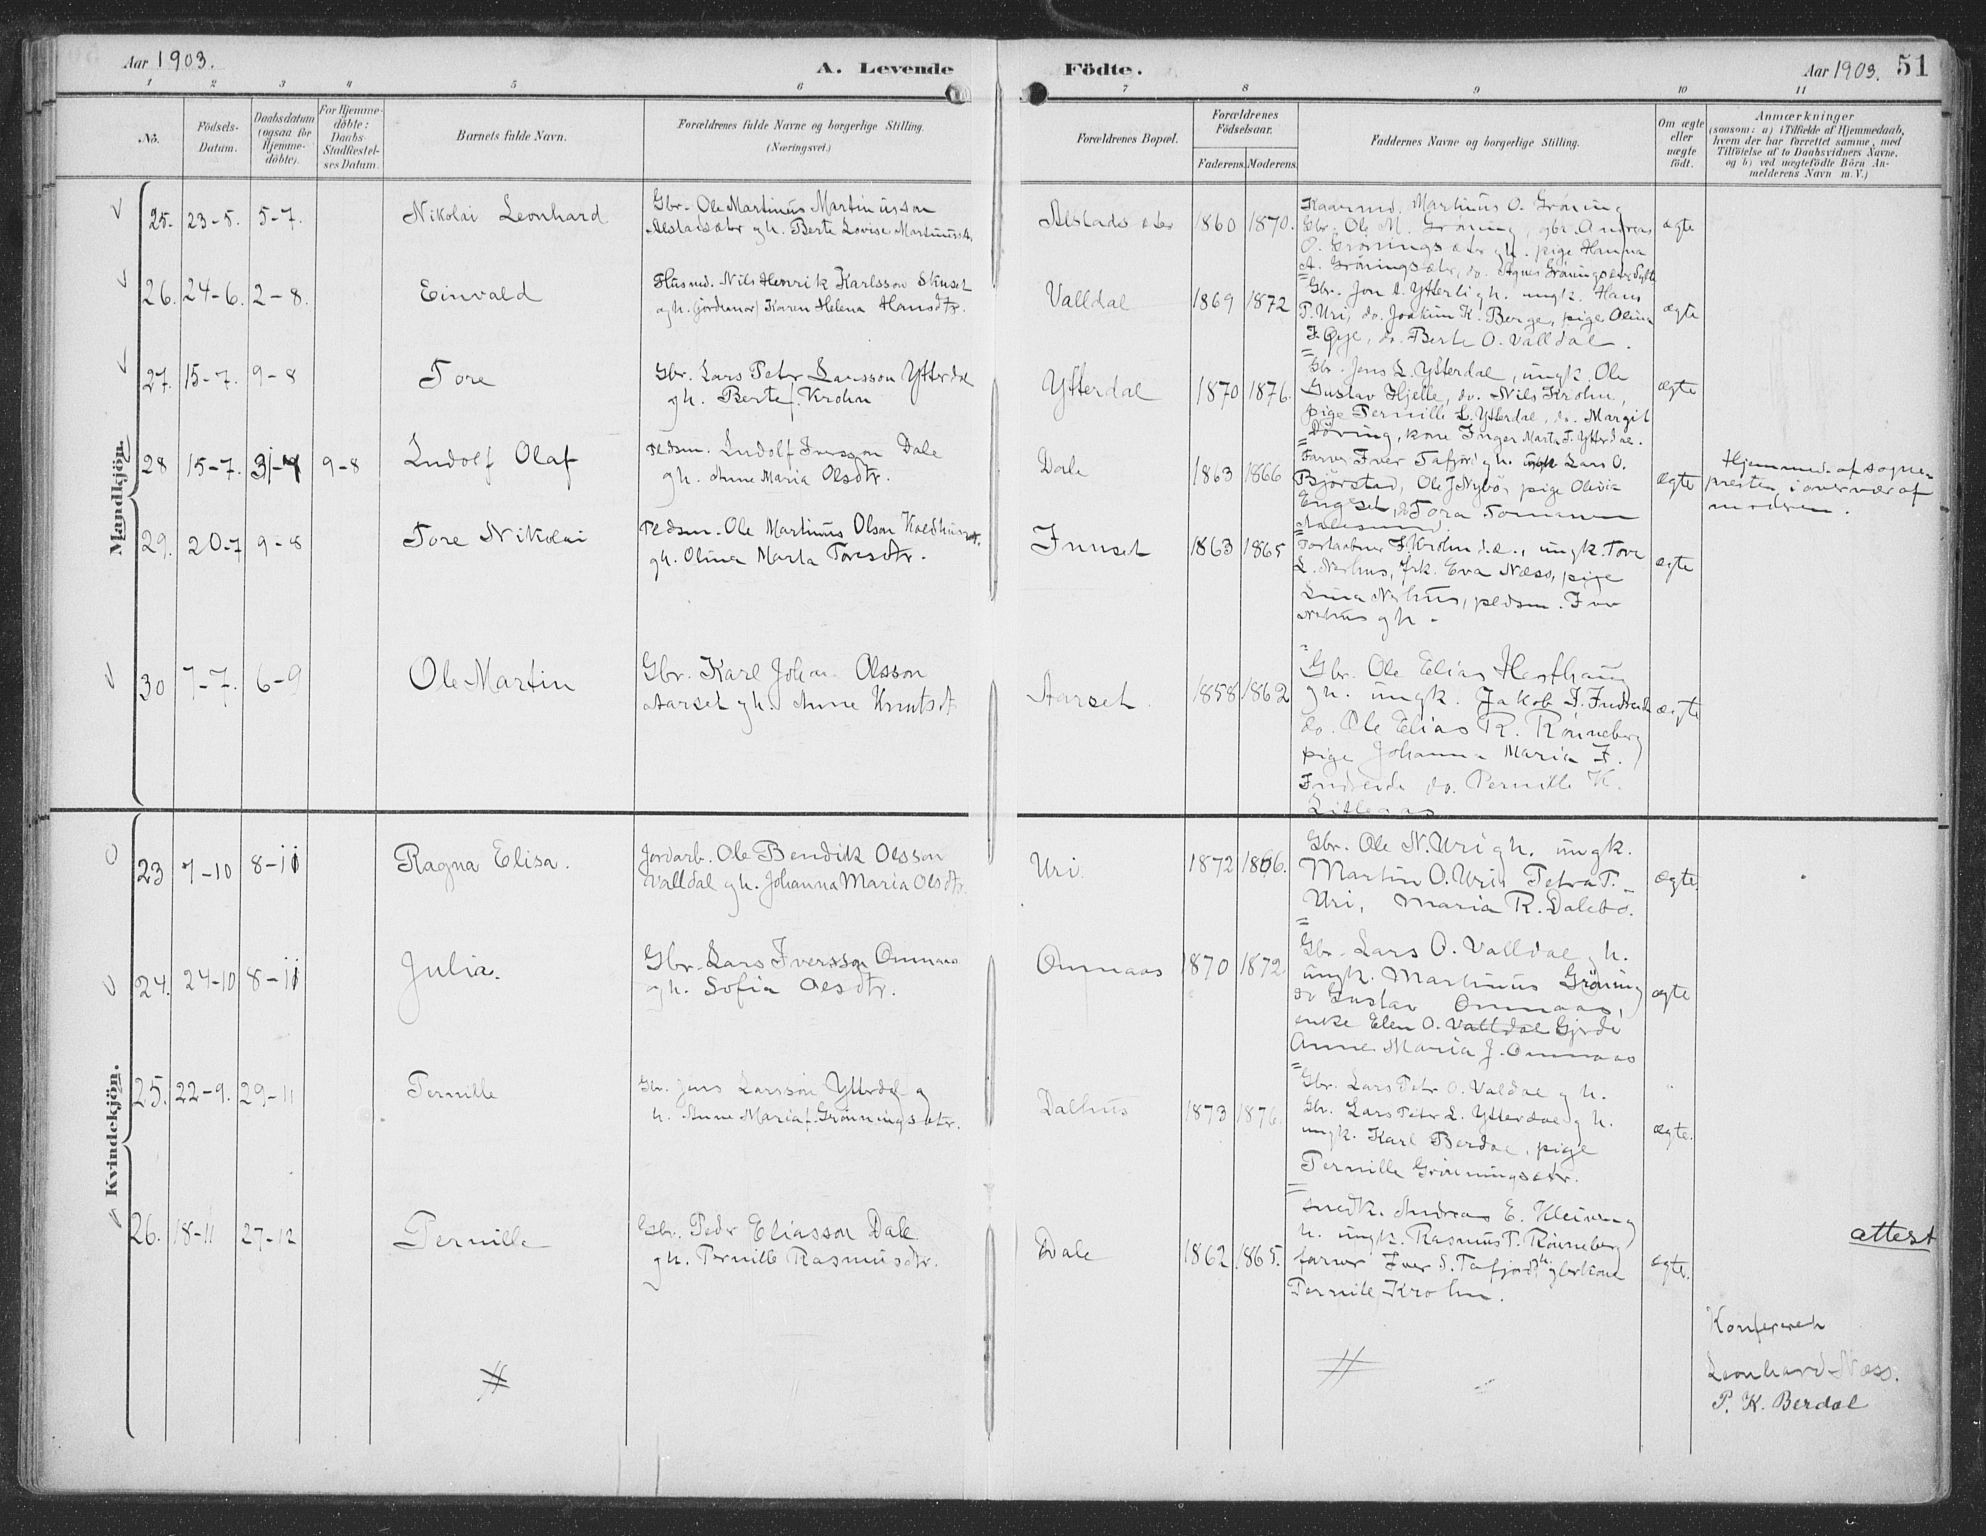 Aar 1903.
A. Levende Födte.
Aar 1903. 51
1 2 3 4 5 6 7 8 9 10 11
No.
Födsels-
Datum.
Daabsdatum
(ogsaa for
Hjemme-
döbte).
For Hjemme-
döbte:
Daabs-
Stadfæstel-
ses Datum.
Barnets fulde Navn.
Forældrenes fulde Navne og borgerlige Stilling.
(Næringsvei.)
Forældrenes Bopæl.
Forældrenes
Födselsaar.
Faderens. Moderens.
Faddernes Navne og borgerlige Stilling.
Om ægte
eller
uægte
födt.
Anmærkninger
(saasom: a) i Tilfælde af Hjemmedaab,
hvem der har forrettet samme, med
Tilföielse af to Daabsvidners Navne.
og b) ved uegtefödte Börn An-
melderens Navn m. V.)
Mandkjön.
25. 23-5. 5-7.
Nikolai Leonhard
Gbr. Ole Martinus Martinusson
Alstadsæter gh. Berte Lovise Martinusd.
Alstadsæter
1860 1870.
Martinus O. Gröning
Gbr. Ole M. Gröning, gbr. Andreas
O. Gröningsæter gh. pige Hanna
A. Gröningsæter, do. Agnes Gröningsæter
ægte
26. 24-6. 2-8.
Einvald
Husmd. Nils Henrik Karlsson
gh. (jordmor) Karen Helena Hansdtr.
Valldal
1869 1872
Gbr. Jon A. Ytterli gh. ungk. Hans
P. Uri, do. Joakim K. Berge, pige Olina
J. Öye, do. Berte O. Valldal.
ægte
27. 15-7. 9-8
Tore
Gbr. Lars Petr Larsson Ytterdal
gh. Berte f. Krohn
Ytterdal
1870 1876.
Gbr. Jens L. Ytterdal, ungk. Ole
Gustav Hjelle, do. Nils Krohn,
pige Pernille L. Ytterdal, do. Margit
Döving, kone Inger Marta T. Ytterdal.
ægte
28 15-7. 31-7 9-8
Ludolf Olaf
Pedsm. Ludolf Iversson Dale
gh. Anne Maria Olsdtr.
Dale
1863 1866
Farver Iver Tafjord gh. ungk Lars O.
Björstad, Ole J Nybö, pige Olivia
Engset, do Tora
Aalesund
ægte
Hjemmed. af sogne-
presten i overvær af
modren.
29. 20-7 9-8
Tore Nikolai
Pedsm. Ole Martinus Olson
gh. Olina Marta Toresdtr.
Innset
1863 1865
I Krohn d.e., ungk. Tore
L. Nerhus, frk. Eva Næss, pige
Lina Nerhus, pedsm. Iver
Nerhus gh.
ægte
30 7-7. 6-9
Ole Martin
Gbr. Karl Johan Olsson
Aarset gh. Anne Knutsdt
Aarset.
1858 1862
Gbr. Ole Elias
gh. ungk. Jakob I. Indreeide
do. Ole Elias R. Rönneberg
pige Johanna Maria I.
Indreeide do. Pernille K.
Litleaas
ægte
Kvindekjön.
23 7-10 8-11
Ragna Elisa.
Jordarb. Ole Bendik Olsson
Valldal gh. Johanna Maria Olsdtr.
Uri.
1872 1866.
Gbr. Ole N. Uri gh. ungk.
Martin O. Uri, Petra P.
Uri, Maria R. Dalebö.
ægte.
24. 24-10 8-11
Julia.
Gbr. Lars Iversson Omnaas
gh. Sofia Olsdtr.
Omnaas
1870 1872
Gbr. Lars O. Valldal gh.
ungk. Martinus Gröning
do Gustav Omnaas,
enke Elen O. Valldal Gjerde
Anne Maria J. Omnaas
ægte
25. 22-9. 29-11
Pernille
Gbr. Jens Larsson Ytterdal g
h. Anne Maria f. Grönningsæter.
Dalhus
1873 1876.
Gbr. Lars Petr O. Valdal gh.
Gbr. Lars Petr L. Ytterdal gh.
ungk. Karl Berdal, pige
Pernille Grönningsæter.
ægte.
26. 18-11 27-12
Pernille
Gbr. Peder Eliasson Dale
gh. Pernille Rasmusdtr.
Dale
1862 1865.
Snedk. Andreas E. Kleiven g
h. ungk. Rasmus T. Rönneberg
farver Iver S. Tafjord
Pernille Krohn.
ægte.
attest
Konfereret
Leonhard Næss.
P. K. Berdal